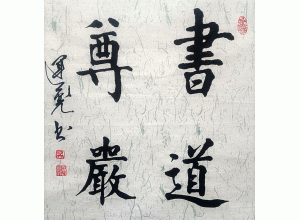 書道
尊嚴